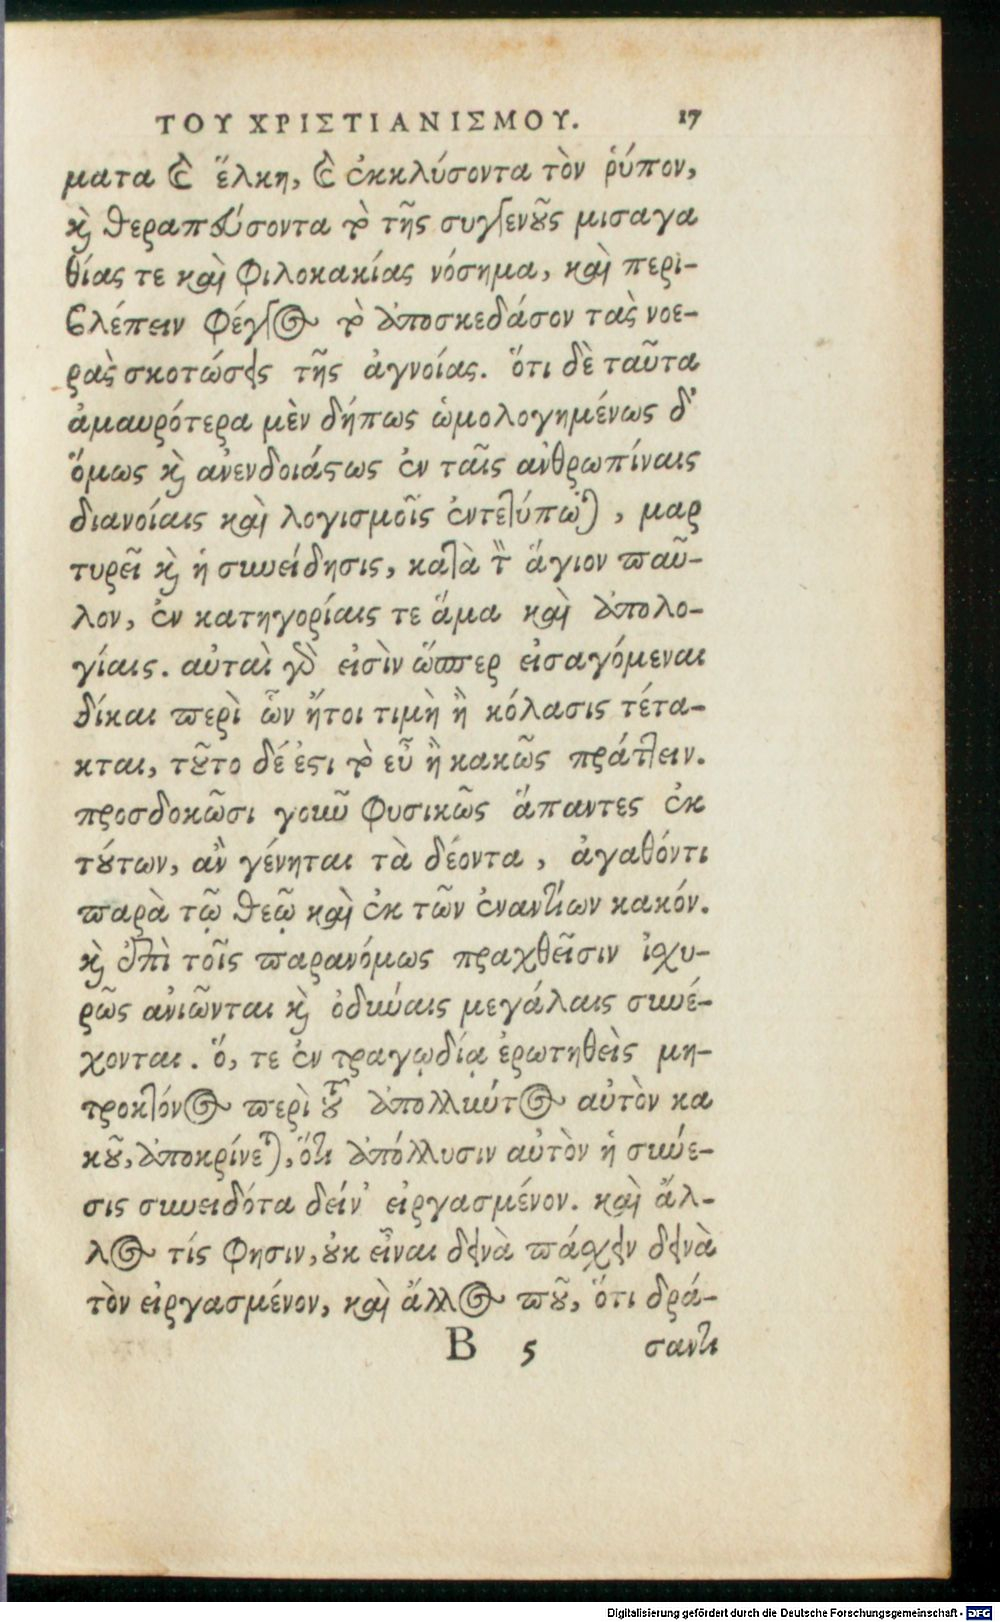 ΤΟΥ ΧΡΙΣΤΙΑΝΙΣΜΟΥ. 17
ματα καὶ ἕλκη, καὶ ἐκκλύσοντα τὸν ῥύπον,
καὶ θεραπεύσοντα τὸ τῆς συγγενοῦς μισαγα
θίας τε καὶ φιλοκακίας νόσημα, καὶ περι-
βλέπειν φέγγος τὸ ἀποσκεδάσον τὰς νοε-
ρὰς σκοτώσεις τῆς ἀγνοίας. ὅτι δὲ ταῦτα
ἀμαυρότερα μὲν δήπως ὡμολογημένως δ'
ὅμως καὶ ἀνενδοιάστως ἐν ταῖς ἀνθρωπίναις
διανοίαις καὶ λογισμοῖς ἐντετύπωται, μαρ
τυρεῖ καὶ ἡ συνείδησις, κατὰ τὸν ἅγιον παῦ-
λον, ἐν κατηγορίαις τε ἅμα καὶ ἀπολο-
γίαις. αὐταὶ γὰρ εἰσὶν ὥσπερ εἰσαγόμεναι
δίκαι περὶ ὧν ἤτοι τιμὴ ἢ κόλασις τέτα-
κται, τοῦτο δέ ἐστι τὸ εὖ ἢ κακῶς πράττειν.
προσδοκῶσι γοῦν φυσικῶς ἅπαντες ἐκ
τούτων, ἂν γένηται τὰ δέοντα, ἀγαθόντι
παρὰ τῷ θεῷ καὶ ἐκ τῶν ἐναντίων κακόν.
καὶ ἐπὶ τοῖς παρανόμως πραχθεῖσιν ἰσχυ-
ρῶς ἀνιῶνται καὶ ὀδύναις μεγάλαις συνέ-
χονται. ὅ, τε ἐν τραγῳδίᾳ ἐρωτηθεὶς μη-
τροκτόνος περὶ τοῦ ἀπολλύντος αὐτὸν κα
κοῦ, ἀποκρίνεται, ὅτι ἀπόλλυσιν αὐτὸν ἡ σύνε-
σις συνειδότα δείν' εἰργασμένον. καὶ ἄλ-
λος τίς φησιν, οὐκ εἶναι δεινὰ πάσχειν δεινὰ
τὸν εἰργασμένον, καὶ ἄλλος ποῦ, ὅτι δρά-
B 5 σαντι
Digitalisierung gefördert durch die Deutsche Forschungsgemeinschaft - DFG